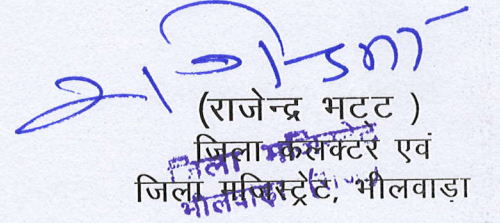 (राजेन्द्र भट्ट )
जिला कलक्टर एवं
जिला मजिस्ट्रेट, भीलवाड़ा
जिला मजिस्ट्रेट
भीलवाड़ा